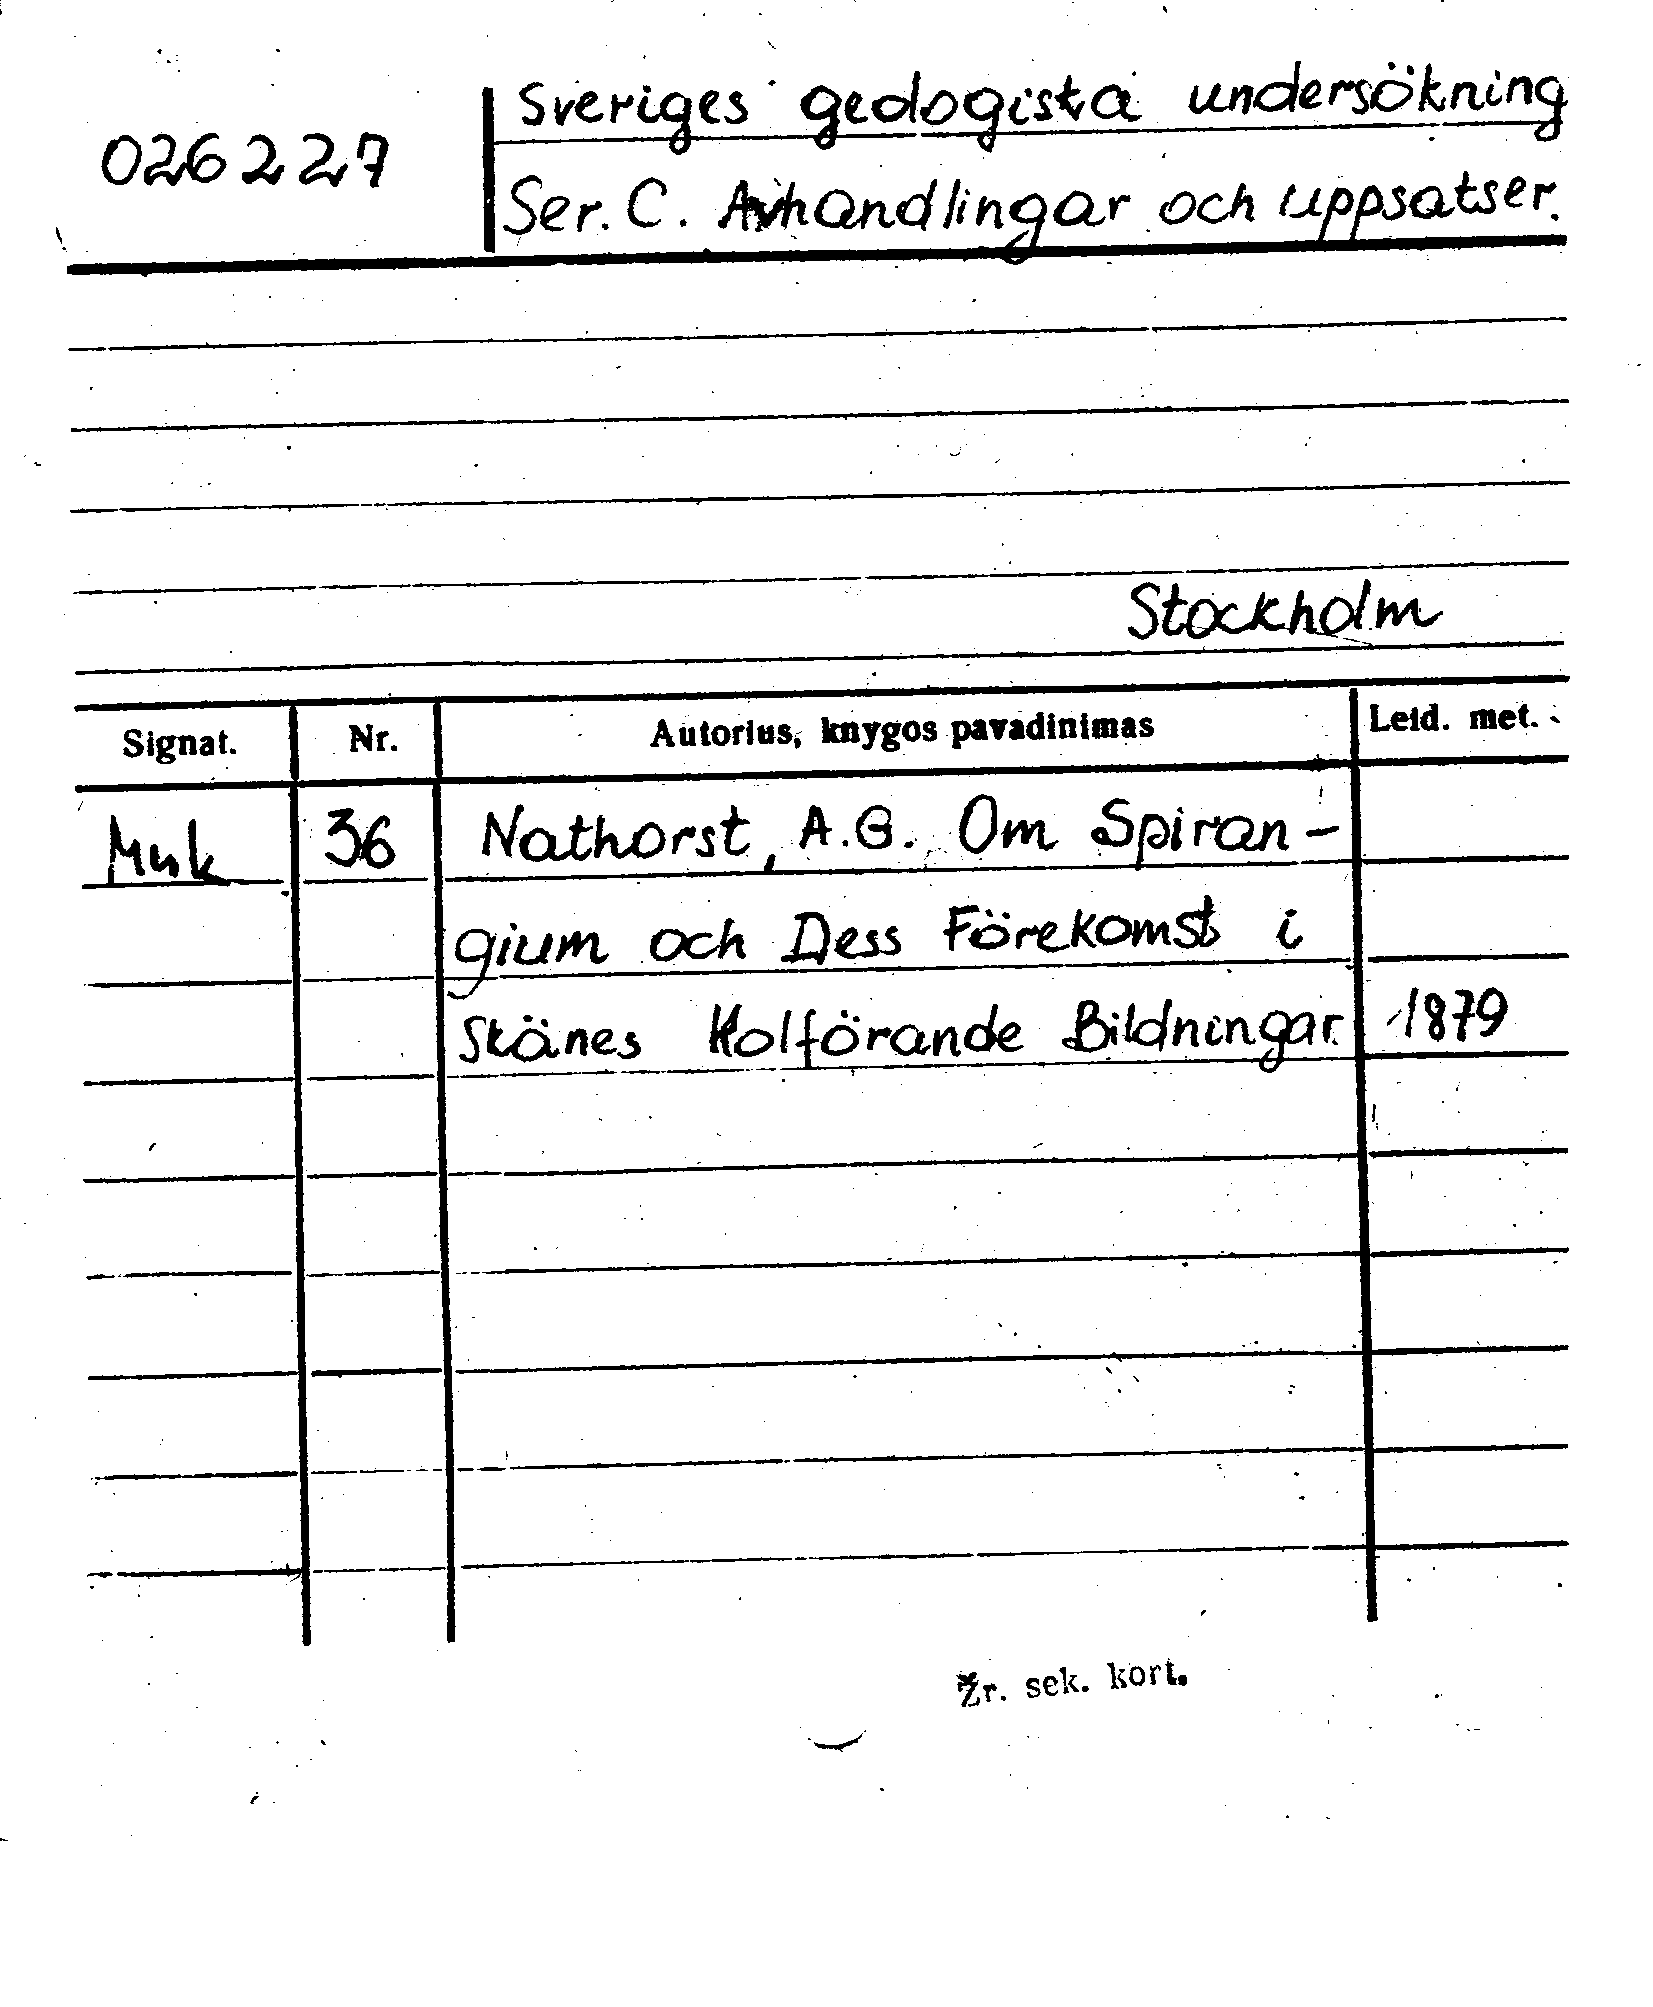 026227
Sveriges geologista undersökning
Ser. C. Avhandlingar och uppsatser.
Stockholm
Signat. Nr. Autorius, knygos pavadinimas Leid. met.
Muk 36 Nathorst, A.G. Om Spiran-
gium och Dess Förekomst i
Skänes Kolförande Bildningar. 1879
Žr. sek. kort.